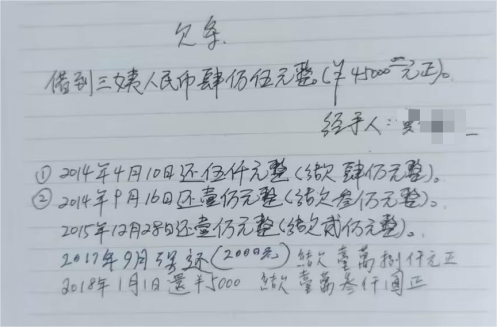 欠条
借到三姨人民币肆仟伍元整。(￥45000.00元正)。
经手人:
① 2014年4月10日还伍仟元整(结欠肆仟元整)。
② 2014年9月16日还壹仟元整(结欠叁仟元整)。
2015年12月28日还壹仟元整(结欠贰仟元整)。
2017年9月 还(2000元) 结欠壹萬捌仟元正
2018年1月1日還￥5000 结欠壹萬叁仟圆正